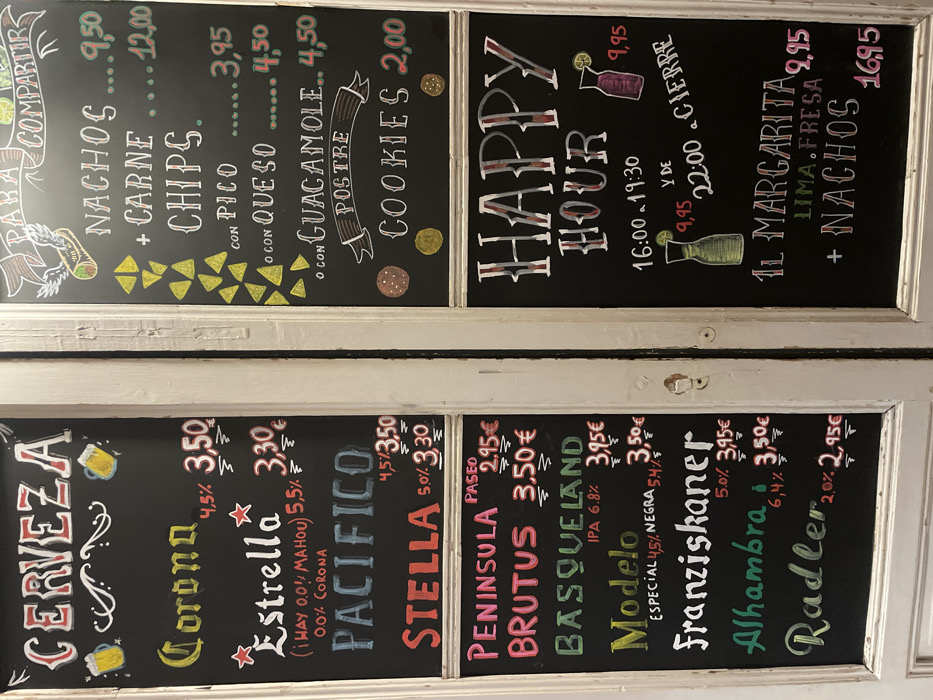 CERVEZA
Corona 4,5% 3,50€
Estrella 3,30€
(¡HAY 0.0% MAHOU) 5,5%
0.0% CORONA
PACIFICO 4,5% 3,50
STELLA 5.0% 3,30
PENINSULA PASEO 2,95€
BRUTUS 3,50€
BASQUELAND 3,95€
IPA 6.8%
Modelo 3,50€
ESPECIAL 4,5% NEGRA 5,4%
Franziskaner 5.0% 3,95€
Alhambra 6,4% 3,50€
Radler 2,0% 2,95€
PARA COMPARTIR
NACHOS .... 9,50
+ CARNE .... 12,00
CHIPS.
CON PICO ...... 3,95
O CON QUESO ...... 4,50
O CON GUACAMOLE.. 4,50
POSTRE
COOKIES 2,00
HAPPY
HOUR 9,95
16:00 a 19:30
Y DE
9,95 22:00 a CIERRE
1L MARGARITA 9,95
LIMA . FRESA
+ NACHOS 16,95